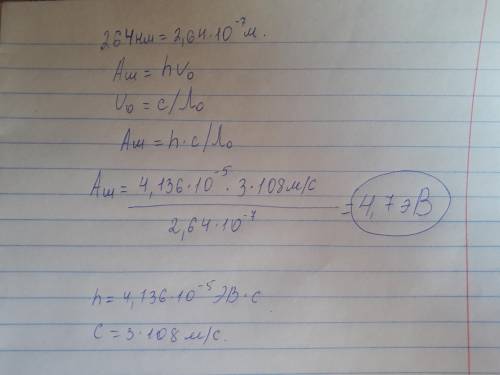 264нм = 2,64·10⁻⁷ м.
Aш = hν₀
ν₀ = c/λ₀
Aш = h·c/λ₀
Aш = 4,136·10⁻⁵ · 3·108 м/с / 2,64·10⁻⁷ = 4,7 эВ
h = 4,136·10⁻⁵ ЭВ·с
C = 3·108 м/с.